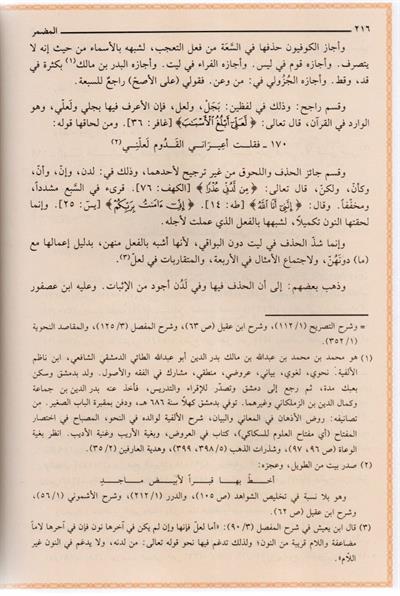 ٢١٦ المضمر
وأجاز الكوفيون حذفها في السَّعَة من فعل التعجب، لشبهه بالأسماء من حيث إنه لا
يتصرف. وأجازه قوم في ليس. وأجازه الفراء في ليت. وأجازه البدر بن مالك(١) بكثرة في
قد، وقط. وأجازه الجُزُولي في: من وعن. فقولي (على الأصحّ) راجعٌ للسبعة.
وقسم راجح: وذلك في لفظين: بَجَلْ، ولعل، فإن الأعرف فيها بجلي ولعلّي، وهو
الوارد في القرآن، قال تعالى: ﴿لَّعَلِّيٓ أَبْلُغُ ٱلْأَسْبَٰبَ﴾ [غافر: ٣٦]. ومن لحاقها قوله:
١٧٠ ـ فقلت أعِيرَاني القَدُوم لَعلّنِي (٢)
وقسم جائز الحذف واللحوق من غير ترجيح لأحدهما، وذلك في: لدن، وإنّ، وأنّ،
وكأنّ، ولكنّ، قال تعالى: ﴿مِن لَّدُنِّي عُذْرًا﴾ [الكهف: ٧٦]. قرىء في السَّبع مشدداً،
ومخفَّفاً. وقال: ﴿إِنَّنِيٓ أَنَا ٱللَّهُ﴾ [طه: ١٤]. ﴿إِنِّيٓ ءَامَنتُ بِرَبِّكُمْ﴾ [يسۤ: ٢٥]. وإنما
لحقتها النون تكميلاً، لشبهها بالفعل الذي عملت لأجله.
وإنما شذّ الحذف في ليت دون البواقي، لأنها أشبه بالفعل منهن، بدليل إعمالها مع
(ما) دونَهُنّ، ولاجتماع الأمثال في الأربعة، والمتقاربات في لعلّ(٣).
وذهب بعضهم: إلى أن الحذف فيها وفي لَدُن أجود من الإثبات. وعليه ابن عصفور
= وشرح التصريح (١١٢/١)، وشرح ابن عقيل (ص ٦٣)، وشرح المفصل (١٢٥/٣)، والمقاصد النحوية
(٣٥٢/١).
(١) هو محمد بن محمد بن عبدالله بن مالك بدر الدين أبو عبدالله الطائي الدمشقي الشافعي، ابن ناظم
الألفية. نحوي، لغوي، بياني، عروضي، منطقي، مشارك في الفقه والأصول. ولد بدمشق وسكن
بعبك مدة، ثم رجع إلى دمشق وتصدّر للإقراء والتدريس، فأخذ عنه بدر الدين بن جماعة
وكمال الدين بن الزملكاني وغيرهما. توفي بدمشق كهلًا سنة ٦٨٦ هـ، ودفن بمقبرة الباب الصغير. من
تصانيفه: روض الأذهان في المعاني والبيان، شرح الألفية لوالده في النحو، المصباح في اختصار
المفتاح (أي مفتاح العلوم للسكاكي)، كتاب في العروض، وبغية الأريب وغنية الأديب. انظر بغية
الوعاة (ص ٩٦، ٩٧)، وشذرات الذهب (٣٩٨/٥، ٣٩٩)، وهدية العارفين (٣٥/٢).
(٢) صدر بيت من الطويل، وعجزه:
أخطُّ بهـا قبـراً لأبيـض مـاجـدِ
وهو بلا نسبة في تخليص الشواهد (ص ١٠٥)، والدرر (٢١٢/١)، وشرح الأشموني (٥٦/١)،
وشرح ابن عقيل (ص ٦٢).
(٣) قال ابن يعيش في شرح المفصل (٩٠/٣): «أما لعلّ فإنها وإن لم يكن في آخرها نون فإن في آخرها لاماً
مضاعفة واللام قريبة من النون؛ ولذلك تدغم فيها نحو قوله تعالى: من لدنه، ولا يدغم في النون غير
اللام».